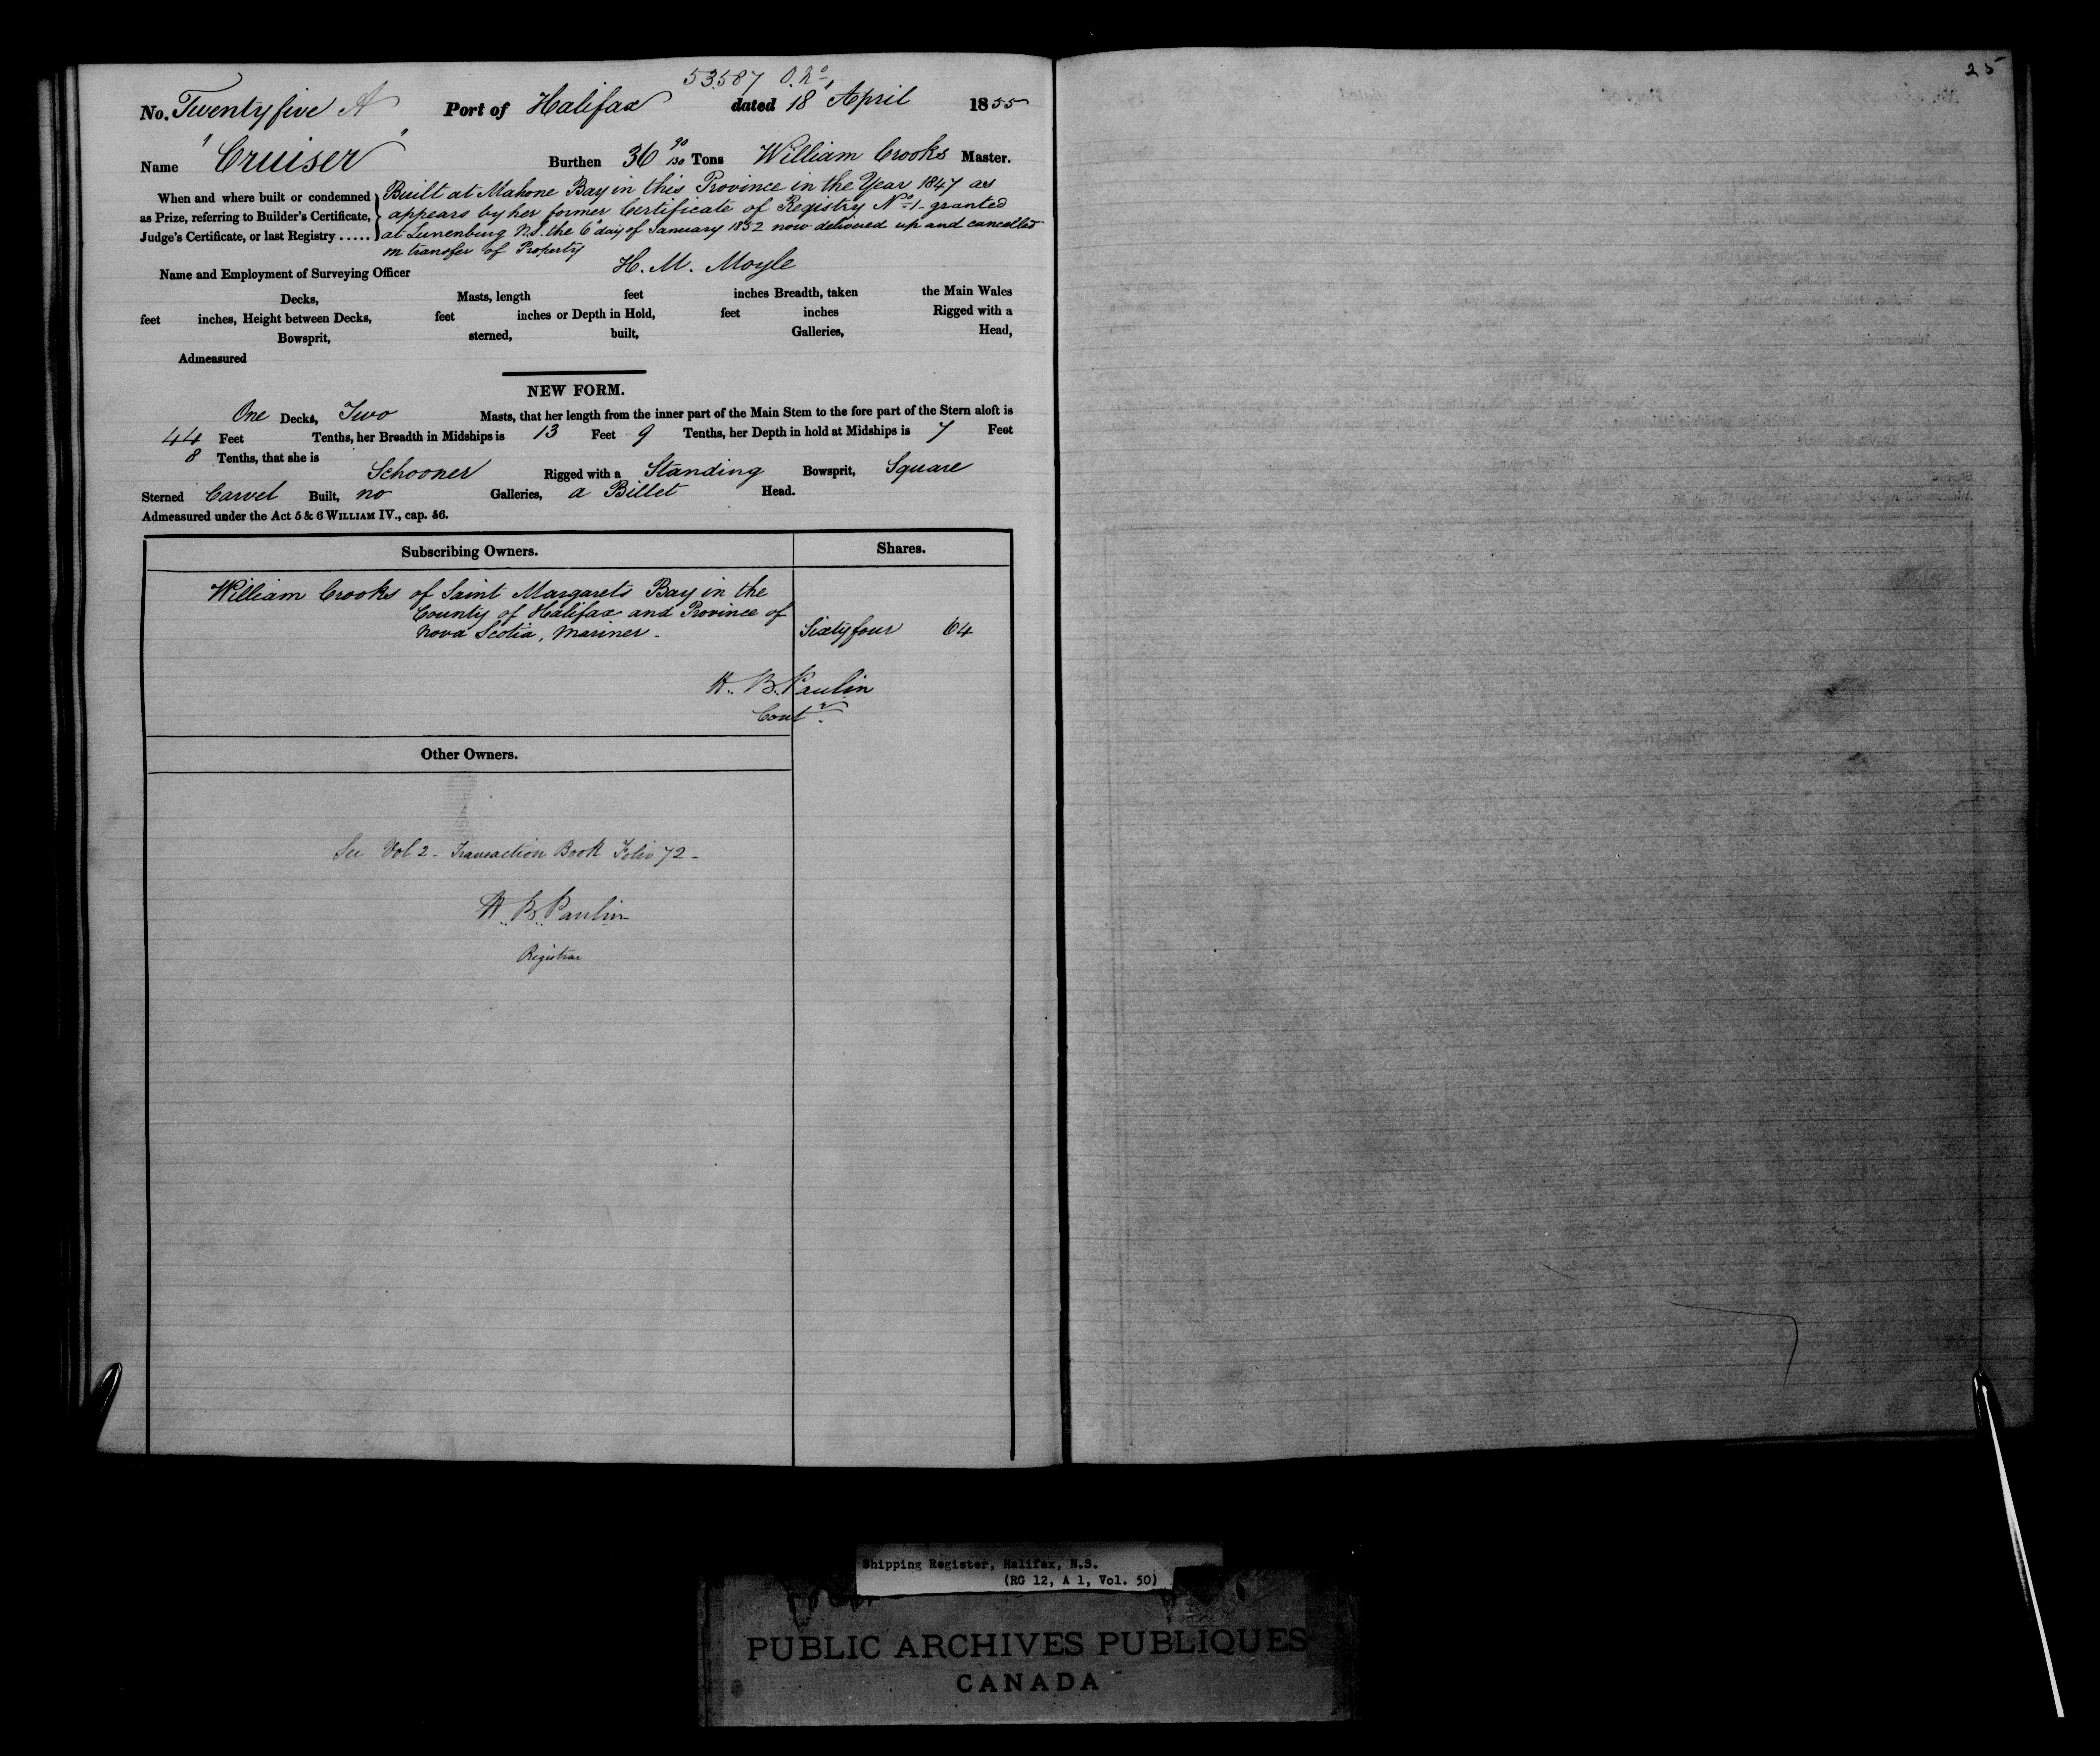 53.587 O. No
No. Twenty five A Port of Halifax dated 18 April 1855
Name "Cruiser" Burthen 36 90/130 Tons William Crooks Master.
When and where built or condemned as Prize, referring to Builder's Certificate, Judge's Certificate, or last Registry .....
Built at Mahone Bay in this Province in the Year 1847 as
appears by her former Certificate of Registry No 1 granted
at Lunenburg N.S. the 6 day of January 1852 now delivered up and cancelled
on transfer of Property
Name and Employment of Surveying Officer H. M. Moyle
Decks, Masts, length feet inches Breadth, taken the Main Wales
feet inches, Height between Decks, feet inches or Depth in Hold, feet inches Rigged with a
Bowsprit, sterned, built, Galleries, Head,
Admeasured
NEW FORM.
One Decks, Two Masts, that her length from the inner part of the Main Stem to the fore part of the Stern aloft is
44 Feet Tenths, her Breadth in Midships is 13 Feet 9 Tenths, her Depth in hold at Midships is 7 Feet
8 Tenths, that she is Schooner Rigged with a Standing Bowsprit, Square
Sterned Carvel Built, no Galleries, a Billet Head.
Admeasured under the Act 5 & 6 WILLIAM IV., cap. 56.
Subscribing Owners. Shares.
William Crooks of Saint Margarets Bay in the
County of Halifax and Province of
Nova Scotia, Mariner. Sixty four 64
H. B. Paulin
Contr
Other Owners.
See Vol 2 - Transaction Book Folio 72 -
H. B. Paulin
Registrar
25
Shipping Register, Halifax, N.S.
(RG 12, A 1, Vol. 50)
PUBLIC ARCHIVES PUBLIQUES
CANADA